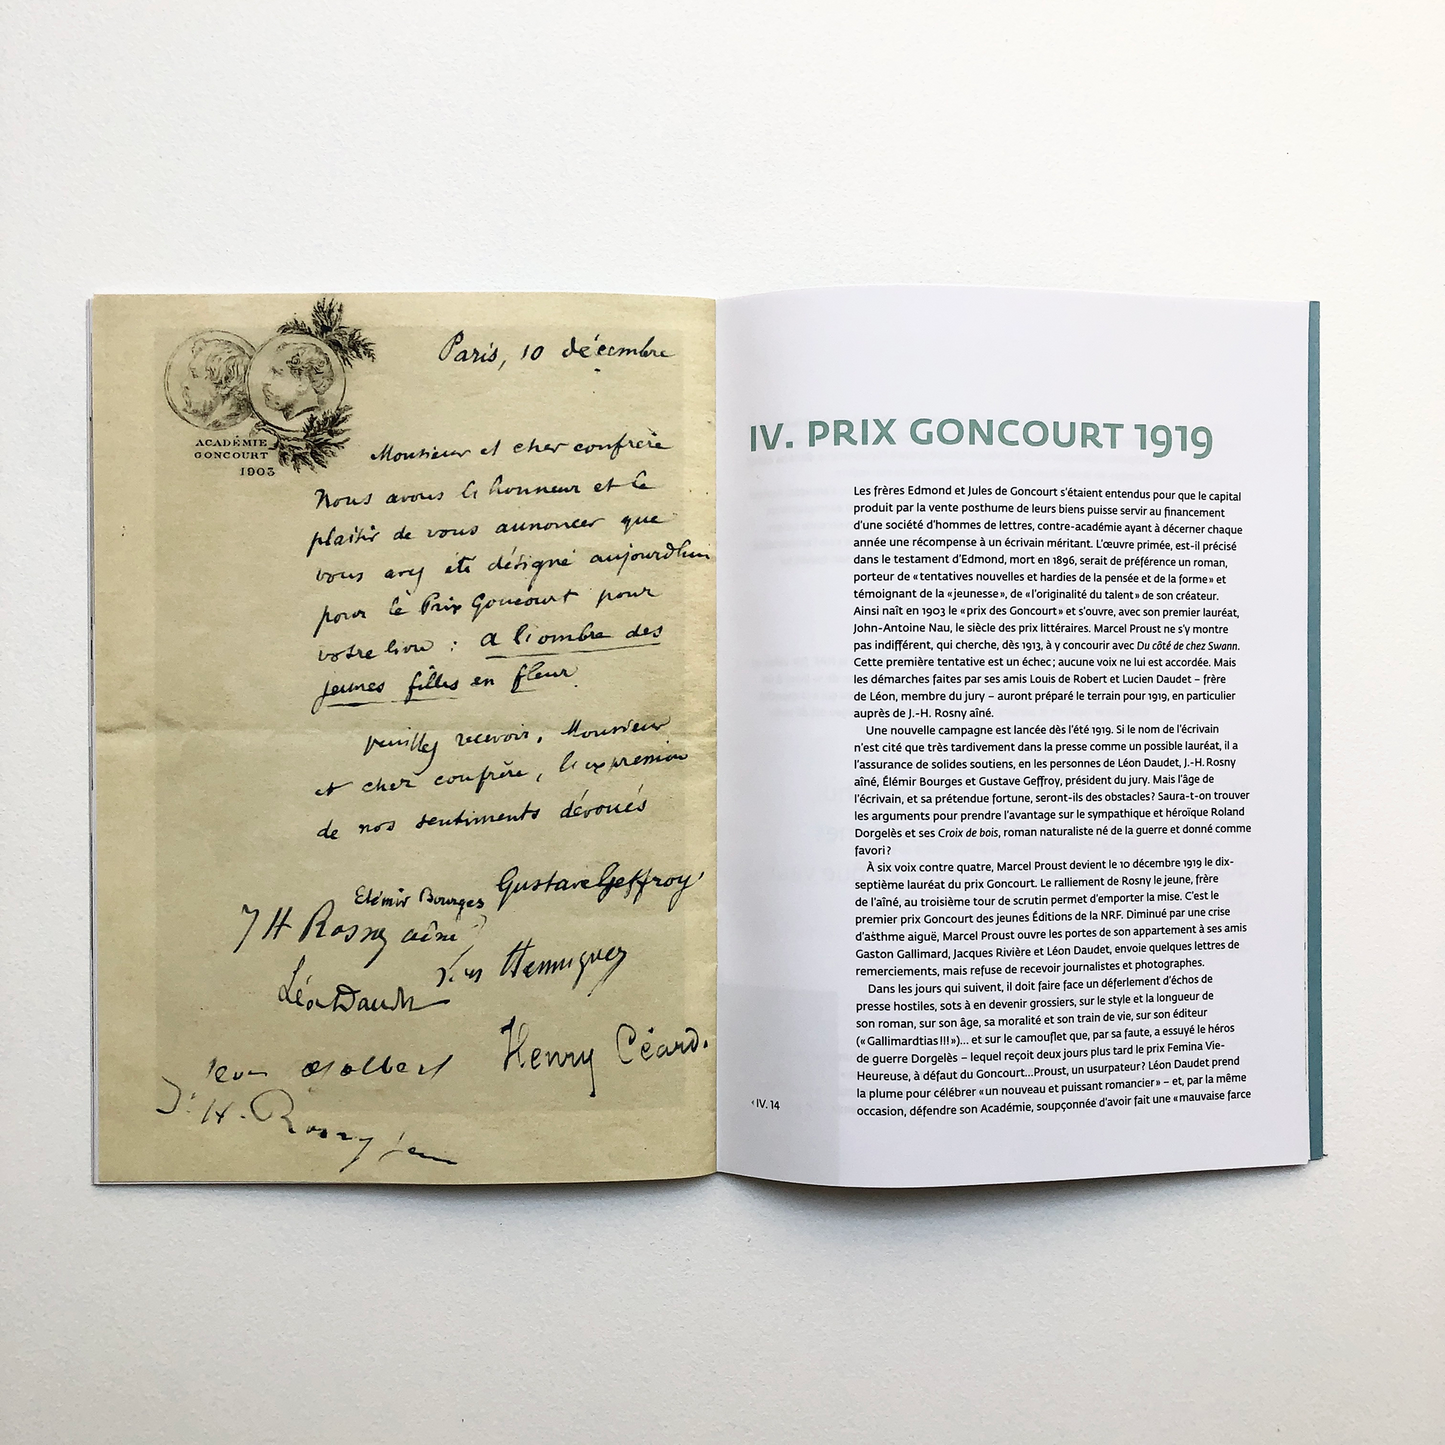 ACADÉMIE
GONCOURT
1903
Paris, 10 décembre
Monsieur et cher confrère
Nous avons l'honneur et le
plaisir de vous annoncer que
vous avez été désigné aujourd'hui
pour le Prix Goncourt pour
votre livre : A l'ombre des
jeunes filles en fleur
Veuillez recevoir, Monsieur
et cher confrère, l'expression
de nos sentiments dévoués
Elémir Bourges Gustave Geffroy
J H Rosny aîné
Hennique
Léon Daudet
Henry Céard.
Jean Ajalbert
J. H. Rosny jeune
IV. PRIX GONCOURT 1919
Les frères Edmond et Jules de Goncourt s'étaient entendus pour que le capital
produit par la vente posthume de leurs biens puisse servir au financement
d'une société d'hommes de lettres, contre-académie ayant à décerner chaque
année une récompense à un écrivain méritant. L'œuvre primée, est-il précisé
dans le testament d'Edmond, mort en 1896, serait de préférence un roman,
porteur de « tentatives nouvelles et hardies de la pensée et de la forme » et
témoignant de la « jeunesse », de « l'originalité du talent » de son créateur.
Ainsi naît en 1903 le « prix des Goncourt » et s'ouvre, avec son premier lauréat,
John-Antoine Nau, le siècle des prix littéraires. Marcel Proust ne s'y montre
pas indifférent, qui cherche, dès 1913, à y concourir avec Du côté de chez Swann.
Cette première tentative est un échec ; aucune voix ne lui est accordée. Mais
les démarches faites par ses amis Louis de Robert et Lucien Daudet – frère
de Léon, membre du jury – auront préparé le terrain pour 1919, en particulier
auprès de J.-H. Rosny aîné.
Une nouvelle campagne est lancée dès l'été 1919. Si le nom de l'écrivain
n'est cité que très tardivement dans la presse comme un possible lauréat, il a
l'assurance de solides soutiens, en les personnes de Léon Daudet, J.-H. Rosny
aîné, Élémir Bourges et Gustave Geffroy, président du jury. Mais l'âge de
l'écrivain, et sa prétendue fortune, seront-ils des obstacles ? Saura-t-on trouver
les arguments pour prendre l'avantage sur le sympathique et héroïque Roland
Dorgelès et ses Croix de bois, roman naturaliste né de la guerre et donné comme
favori ?
À six voix contre quatre, Marcel Proust devient le 10 décembre 1919 le dix-
septième lauréat du prix Goncourt. Le ralliement de Rosny le jeune, frère
de l'aîné, au troisième tour de scrutin permet d'emporter la mise. C'est le
premier prix Goncourt des jeunes Éditions de la NRF. Diminué par une crise
d'asthme aiguë, Marcel Proust ouvre les portes de son appartement à ses amis
Gaston Gallimard, Jacques Rivière et Léon Daudet, envoie quelques lettres de
remerciements, mais refuse de recevoir journalistes et photographes.
Dans les jours qui suivent, il doit faire face un déferlement d'échos de
presse hostiles, sots à en devenir grossiers, sur le style et la longueur de
son roman, sur son âge, sa moralité et son train de vie, sur son éditeur
(« Gallimardtias !!! »)... et sur le camouflet que, par sa faute, a essuyé le héros
de guerre Dorgelès – lequel reçoit deux jours plus tard le prix Femina Vie-
Heureuse, à défaut du Goncourt...Proust, un usurpateur ? Léon Daudet prend
la plume pour célébrer « un nouveau et puissant romancier » – et, par la même
occasion, défendre son Académie, soupçonnée d'avoir fait une « mauvaise farce
‹ IV. 14